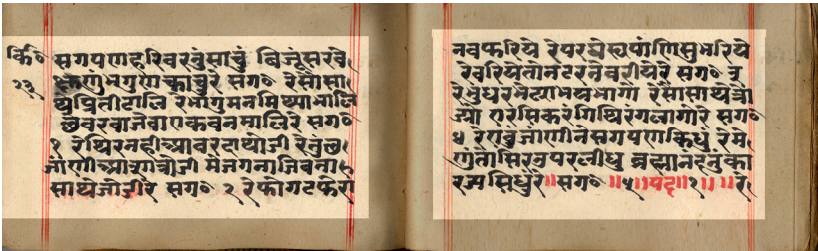 कि॰ सगपणहरिवरनुंसाचुं बिजूंसरवे
२३ भगुणकाचुरे सग॰ रेसोसा
थेप्रितीटालि मनमिथ्याभालि
वरवाजेवाएकवनमालिरे सग॰
१ रेथिरनही रेतुं
जाणी मेजगनाजिवना
साथेजोडीरे सग॰ २ रेफोगटफेरा
नवफरिये रेपरघेर सुभरिये
रेवरियेतोनटवरनेवरीयेरे सग॰ ३
रेभुधरभेटाभयभागो रेसोसाथे
एरसिकरंगिथिरंगलागोरे सग॰
४ रेएवुजाणीनेसगपणकिधुं रेमे
णुंतोसिरउपरलीधु ब्रह्मानदनुंका
रजसिधुंरे॥सग॰ ॥५॥पद॥१॥ ॥रे